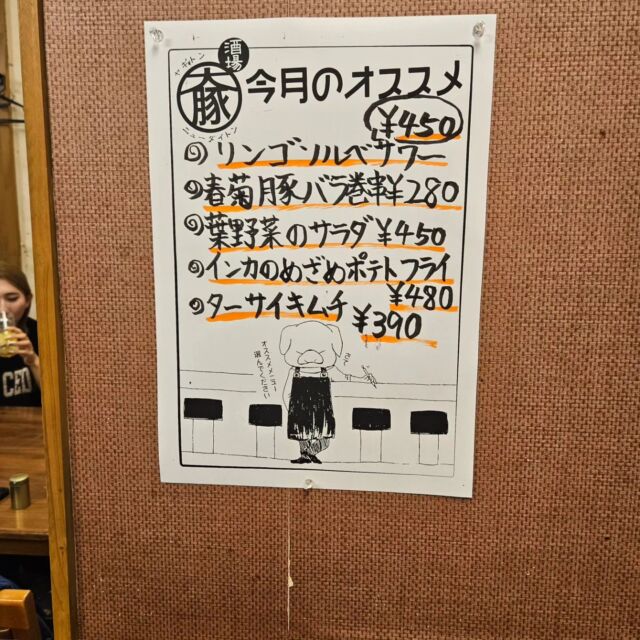 酒場
ヤキトン
大豚
ニューダイトン
今月のオススメ
¥450
リンゴソルベサワー
春菊豚バラ巻串¥280
葉野菜のサラダ¥450
インカのめざめポテトフライ
¥480
ターサイキムチ
¥390
オススメメニュー
選んでください